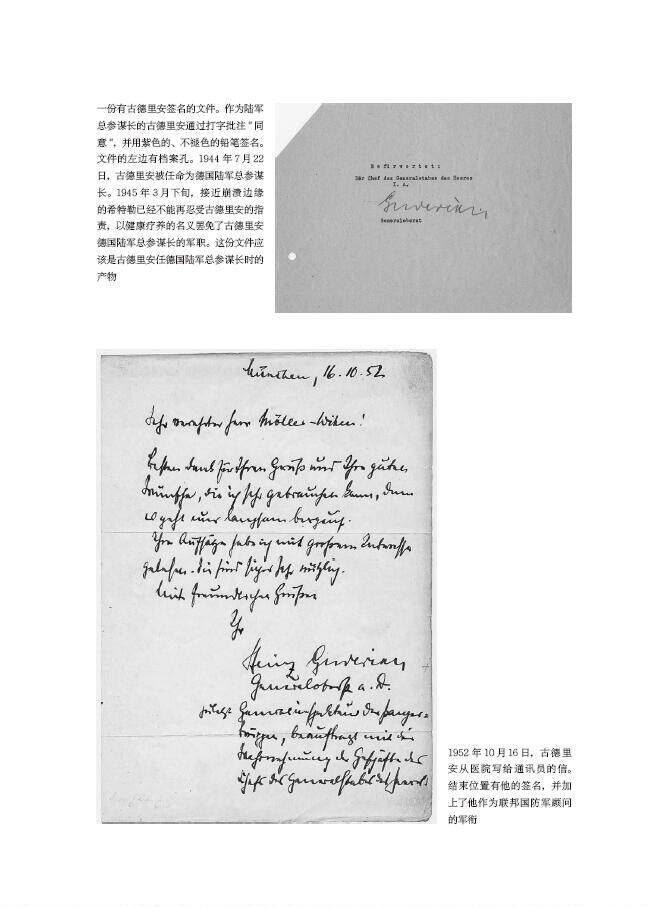 一份有古德里安签名的文件。作为陆军
总参谋长的古德里安通过打字批注“同
意”，并用紫色的、不褪色的铅笔签名。
文件的左边有档案孔。1944 年 7 月 22
日，古德里安被任命为德国陆军总参谋
长。1945 年 3 月下旬，接近崩溃边缘
的希特勒已经不能再忍受古德里安的指
责，以健康疗养的名义罢免了古德里安
德国陆军总参谋长的军职。这份文件应
该是古德里安任德国陆军总参谋长时的
产物
Befürwortet:
Der Chef des Generalstabes des Heeres
I. A.
Guderian
Generaloberst
München, 16.10.52
Sehr verehrter Herr Möller-Witten!
Besten Dank für Ihren Gruß und Ihre guten
Wünsche, die ich sehr gebrauchen kann, denn
es geht nur langsam bergauf.
Ihre Aufsätze habe ich mit großem Interesse
gelesen. Sie sind sicher sehr nützlich.
Mit freundlichen Grüßen
Ihr
Heinz Guderian
Generaloberst a. D.
zuletzt Generalinspekteur der Panzer-
truppen, beauftragt mit der
Wahrnehmung der Geschäfte des
Chefs des Generalstabes des Heeres
1952 年 10 月 16 日，古德里
安从医院写给通讯员的信。
结束位置有他的签名，并加
上了他作为联邦国防军顾问
的军衔